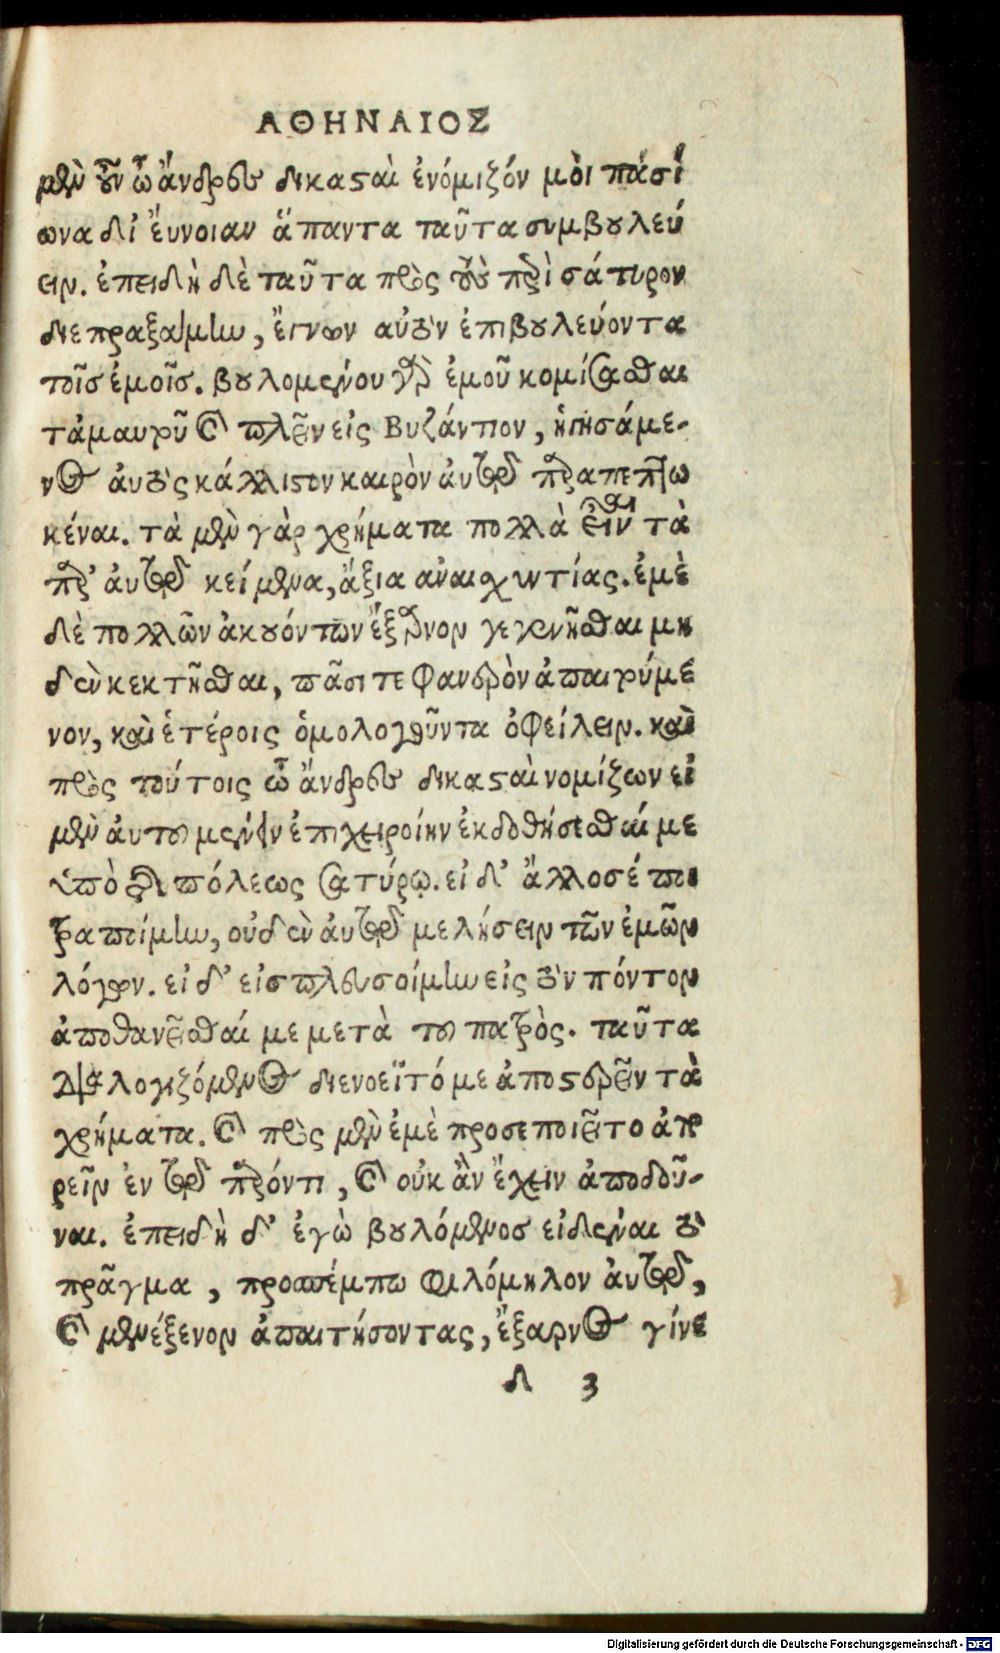 ΑΘΗΝΑΙΟΣ
μὲν οὖν ὦ ἄνδρες δικασταὶ ἐνόμιζόν μοι πασί
ωνα δι' ἔυνοιαν ἅπαντα ταῦτα συμβουλεύ
ειν. ἐπειδὴ δὲ ταῦτα πρὸς τοὺς περὶ σάτυρον
διεπραξάμην, ἔγνων αὐτὸν ἐπιβουλεύοντα
τοῖς ἐμοῖς. βουλομένου γὰρ ἐμοῦ κομίσασθαι
τἀμαυτοῦ καὶ πλεῖν εἰς Βυζάντιον, ἡγησάμε-
νος ἀυτὸς κάλλιστον καιρὸν ἀυτῷ παραπεπτω
κέναι. τὰ μὲν γὰρ χρήματα πολλὰ εἶναι τὰ
παρ' ἀυτῷ κείμενα, ἄξια αναισχυντίας. ἐμὲ
δὲ πολλῶν ἀκουόντων ἔξαρνον γεγενῆσθαι μη
δὲν κεκτῆσθαι, πᾶσι τε φανερὸν ἀπαιτούμε
νον, καὶ ἑτέροις ὁμολογοῦντα ὀφείλειν. καὶ
πρὸς τούτοις ὦ ἄνδρες δικασταὶ νομίζων εἰ
μὲν ἀυτου μένειν ἐπιχειροίην ἐκδοθήσεσθαί με
ὑπὸ τῆς πόλεως σατύρῳ. εἰ δ' ἄλλοσέ ποι
τραποίμην, οὐδὲν ἀυτῷ μελήσειν τῶν ἐμῶν
λόγων. εἰ δ' εἰσπλευσοίμην εἰς τὸν πόντον
ἀποθανεῖσθαί με μετὰ του πατρὸς. ταῦτα
διαλογιζόμενος διενοεῖτό με ἀποστερεῖν τὰ
χρήματα. καὶ πρὸς μὲν ἐμὲ προσεποιεῖτο ἀπο
ρεῖν ἐν τῷ παρόντι, καὶ οὐκ ἂν ἔχειν ἀποδοῦ-
ναι. ἐπειδὴ δ' ἐγὼ βουλόμενος εἰδέναι τὸ
πρᾶγμα, προσπέμπω Φιλόμηλον ἀυτῷ,
καὶ μενέξενον ἀπαιτήσοντας, ἔξαρνος γίνε
δ 3
Digitalisierung gefördert durch die Deutsche Forschungsgemeinschaft - DFG